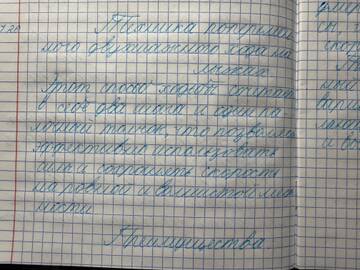 Техника поперемен
ного двухшажного хода на
лыжах.
Этот способ ходьбы сочетает
в себе два шага и один
толчок, что позволяет
эффективно использовать
силы и сохранять скорость
на ровной и волнистой мес
тности
Преимущества